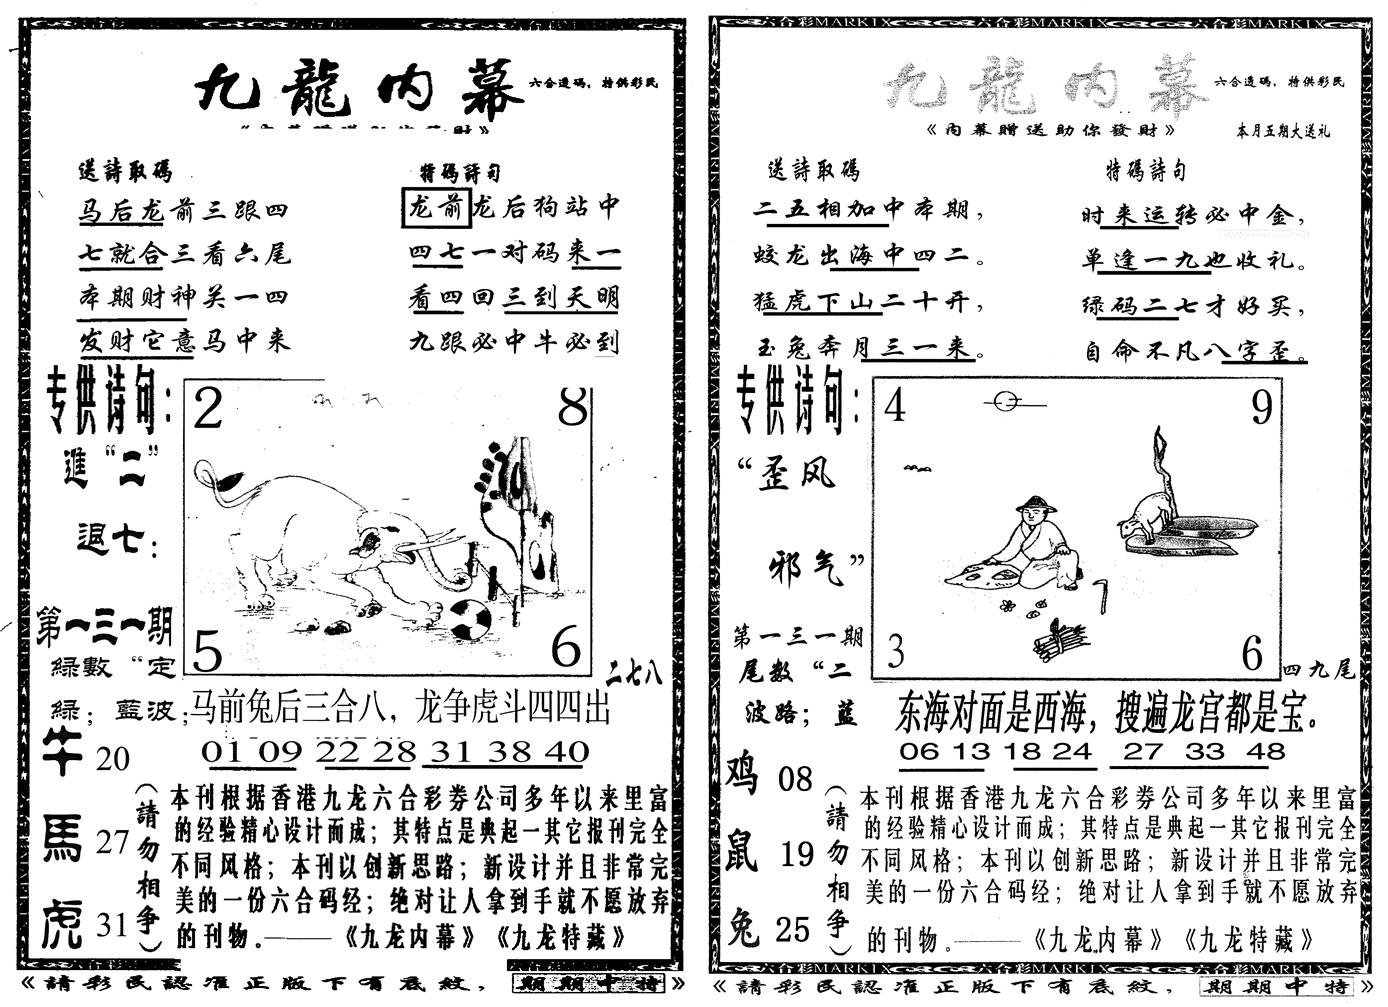 九龍内幕
六合透码，特供彩民
送詩取碼
马后龙前三跟四
七就合三看六尾
本期财神关一四
发财它意马中来
特碼詩句
龙前龙后狗站中
四七一对码来一
看四回三到天明
九跟必中牛必到
专供诗句：
進“二”
退七：
第一三一期
緑數“定
緑；藍波；
2 8
5 6
二七八
马前兔后三合八，龙争虎斗四四出
01 09 22 28 31 38 40
牛 20
馬 27
虎 31
（請勿相争）
本刊根据香港九龙六合彩券公司多年以来里富
的经验精心设计而成；其特点是典起一其它报刊完全
不同风格；本刊以创新思路；新设计并且非常完
美的一份六合码经；绝对让人拿到手就不愿放弃
的刊物。——《九龙内幕》《九龙特藏》
《請彩民認准正版下有底紋，期期中特》
六合彩MARKIX 六合彩MARKIX 六合彩MARKIX
九龍内幕
六合透码，特供彩民
《内幕赠送助你發財》
本月五期大送礼
送詩取碼
二五相加中本期，
蛟龙出海中四二。
猛虎下山二十开，
玉兔奔月三一来。
特碼詩句
时来运转必中金，
单逢一九也收礼。
绿码二七才好买，
自命不凡八字歪。
专供诗句：
“歪风
邪气”
第一三一期
尾数“二
波路；藍
4 9
3 6
四九尾
东海对面是西海，搜遍龙宫都是宝。
06 13 18 24 27 33 48
鸡 08
鼠 19
兔 25
（請勿相争）
本刊根据香港九龙六合彩券公司多年以来里富
的经验精心设计而成；其特点是典起一其它报刊完全
不同风格；本刊以创新思路；新设计并且非常完
美的一份六合码经；绝对让人拿到手就不愿放弃
的刊物。——《九龙内幕》《九龙特藏》
六合彩MARKIX 六合彩MARKIX 六合彩MARKIX
《請彩民認准正版下有底紋，期期中特》